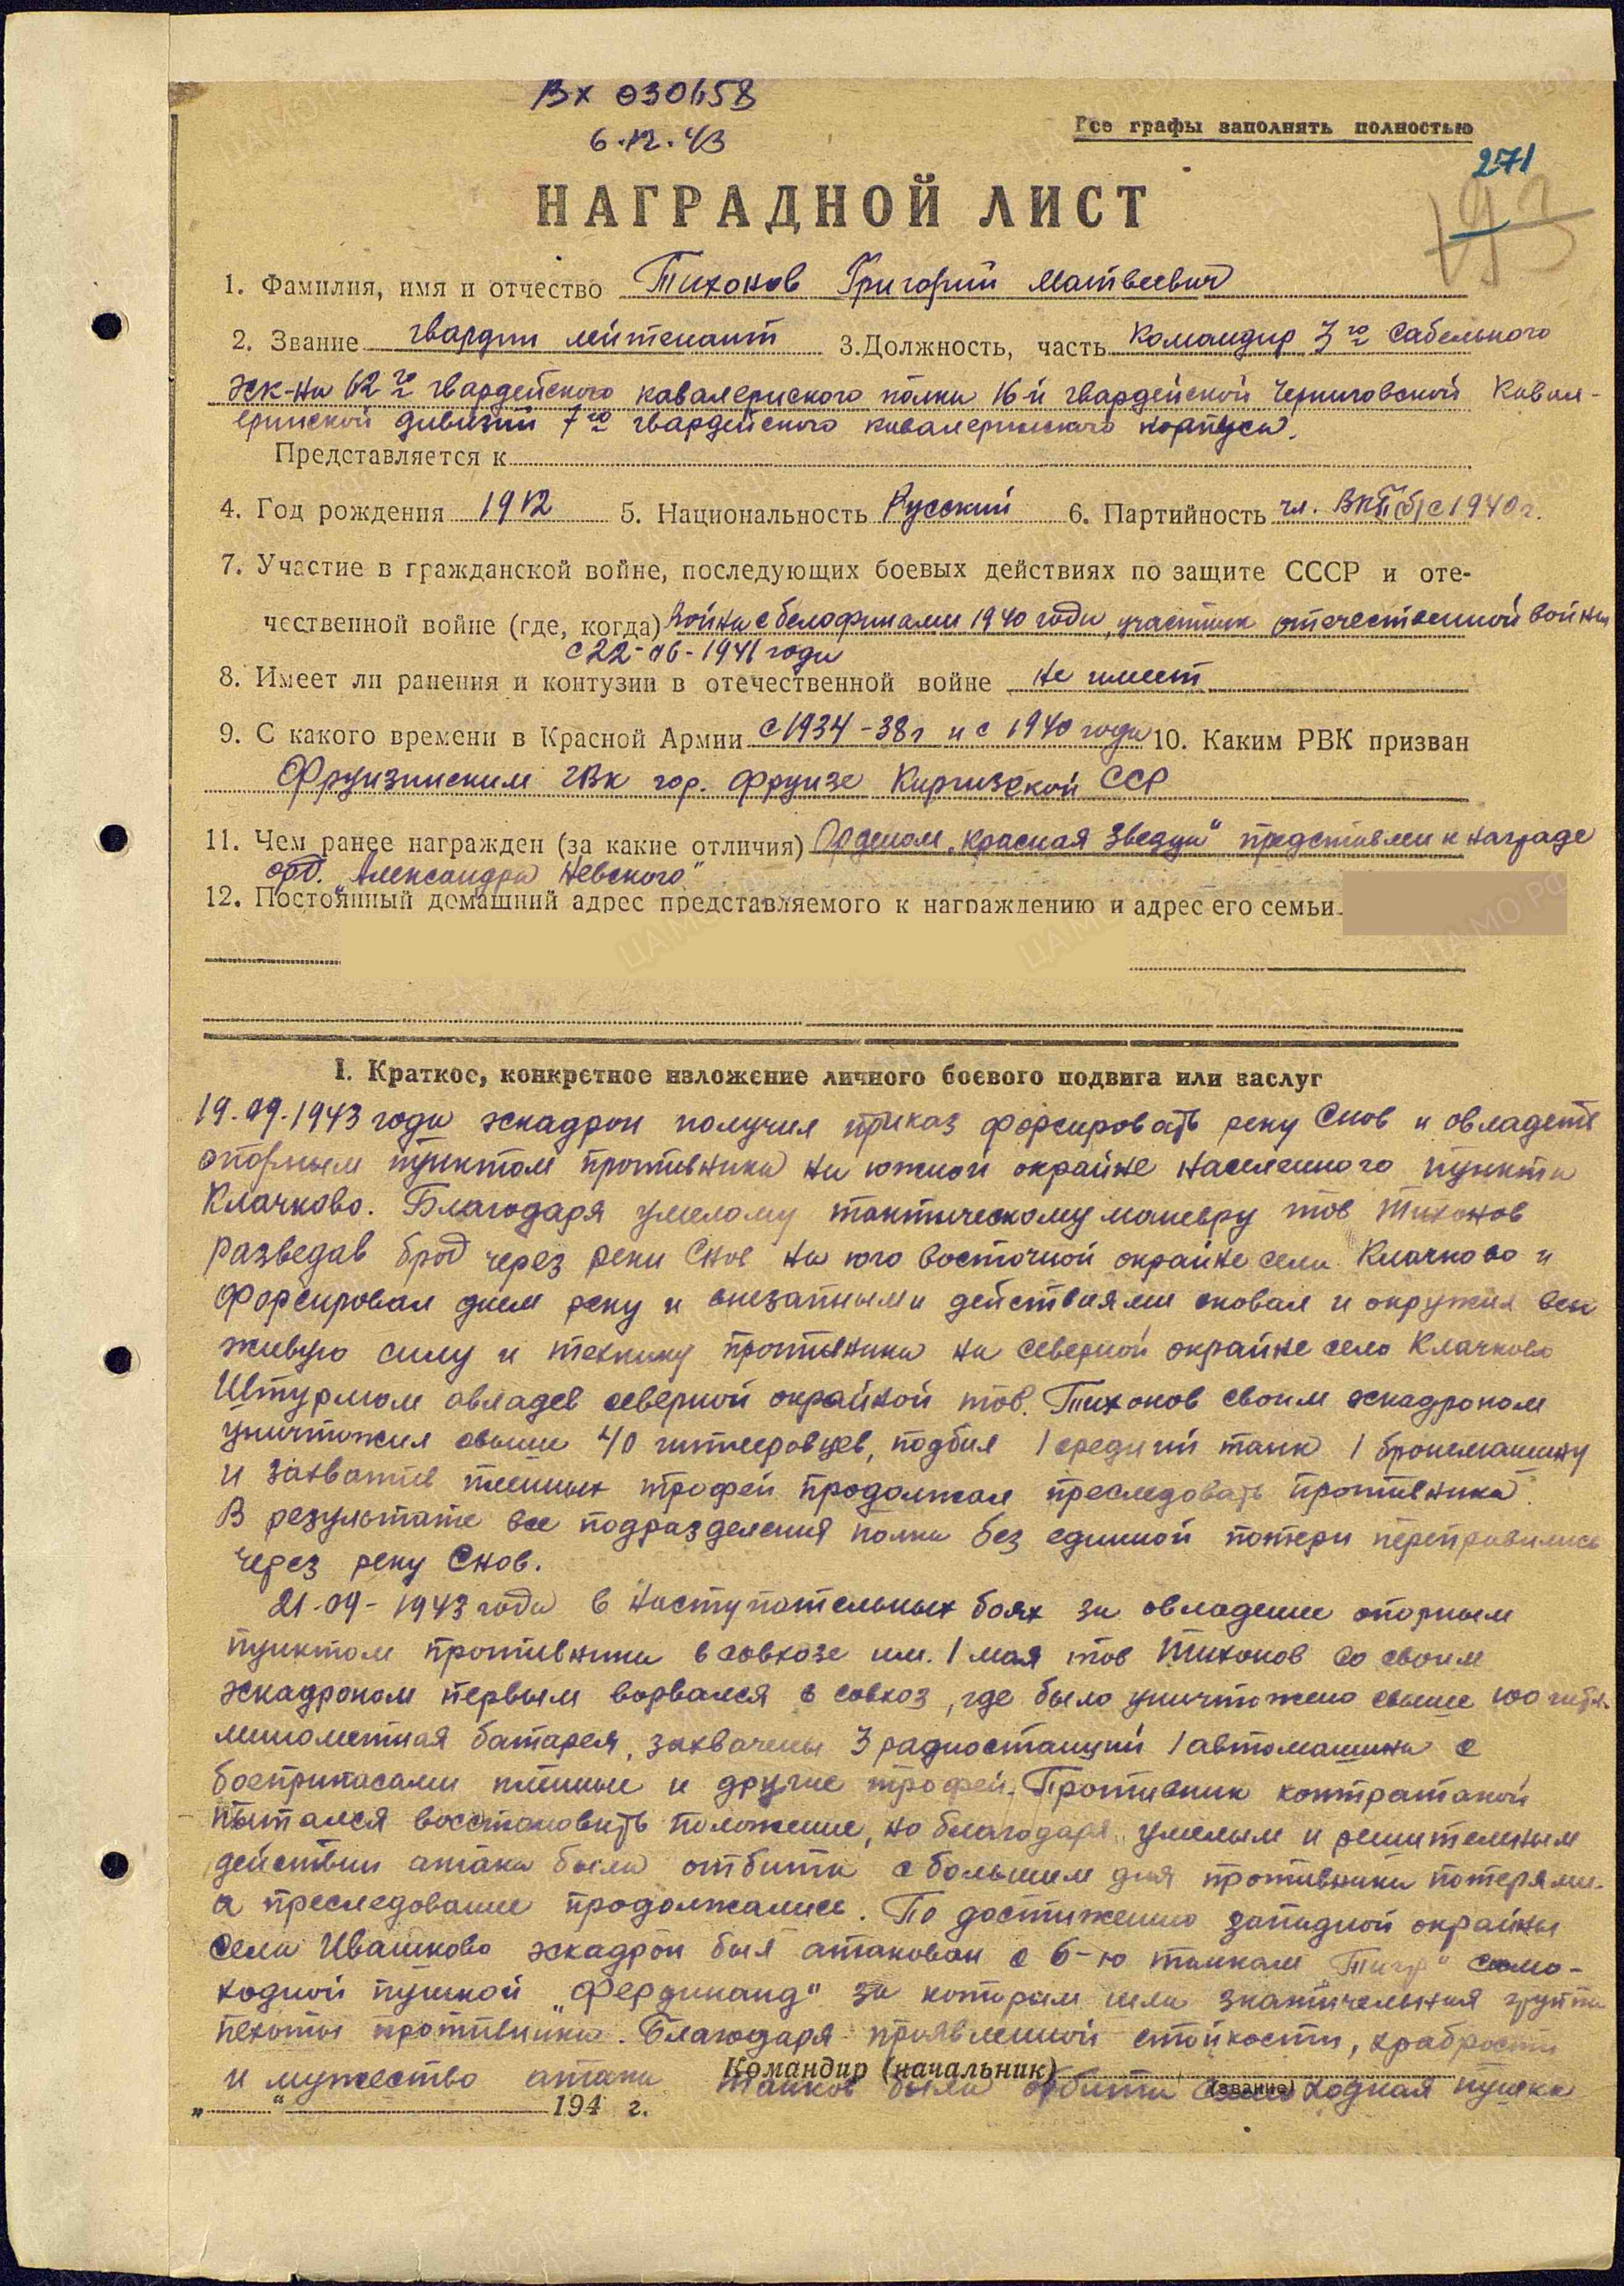 Вх 030658
6.12.43
Все графы заполнять полностью
271
193
НАГРАДНОЙ ЛИСТ
1. Фамилия, имя и отчество Тихонов Григорий Матвеевич
2. Звание гвардии лейтенант 3. Должность, часть Командир 3го Сабельного
эск-на 62го гвардейского кавалериского полка 16й гвардейской Черниговской Кавал-
ерийской дивизии 7го гвардейского кавалерийского корпуса.
Представляется к
4. Год рождения 1912 5. Национальность Русский 6. Партийность чл. ВКП(б) с 1940 г.
7. Участие в гражданской войне, последующих боевых действиях по защите СССР и оте-
чественной войне (где, когда) Война с белофинами 1940 года, участник отечественной войны
с 22-06-1941 года
8. Имеет ли ранения и контузии в отечественной войне не имеет
9. С какого времени в Красной Армии с 1934-38 г и с 1940 года 10. Каким РВК призван
Фрунзинским ГВК гор. Фрунзе Киргизской ССР
11. Чем ранее награжден (за какие отличия) Орденом „Красная Звезда" представлен к награде
орд. „Александра Невского"
12. Постоянный домашний адрес представляемого к награждению и адрес его семьи
I. Краткое, конкретное изложение личного боевого подвига или заслуг
19.09.1943 года эскадрон получил приказ форсировать реку Снов и овладеть
опорным пунктом противника на южной окрайне населенного пункта
Клачково. Благодаря умелому тактическому маневру тов Тихонов
разведав брод через реку Снов на юго восточной окрайне села Клачково и
форсировал днем реку и внезапными действиями сковал и окружил всю
живую силу и технику противника на северной окрайне село Клачково
Штурмом овладев северной окрайной тов. Тихонов своим эскадроном
уничтожил свыше 40 гитлеровцев, подбил 1 средний танк 1 бронемашину
и захватив пленных трофеи продолжал преследовать противника.
В результате все подразделения полка без единной потери переправились
через реку Снов.
21-09-1943 года в наступательных боях за овладение опорным
пунктом противника в совхозе им. 1 мая тов Тихонов со своим
эскадроном первым ворвался в совхоз, где было уничтожено свыше 100 гитл.
минометная батарея, захвачены 3 радиостанций 1 автомашина с
боеприпасами пленные и другие трофеи. Противник контратакой
пытался восстановить положение, но благодаря умелым и решительным
действии атака была отбита с большим для противника потерями.
а преследование продолжались. По достижению западной окрайны
села Ивашково эскадрон был атакован с 6-ю танкам „Тигр" само-
ходной пушкой „Фердинанд" за которым шла значительная группа
пехоты противника. Благодаря проявленной стойкости, храбрости
и мужество атака танков была отбита ходная пушка
Командир (начальник)
(звание)
„ " 194 г.